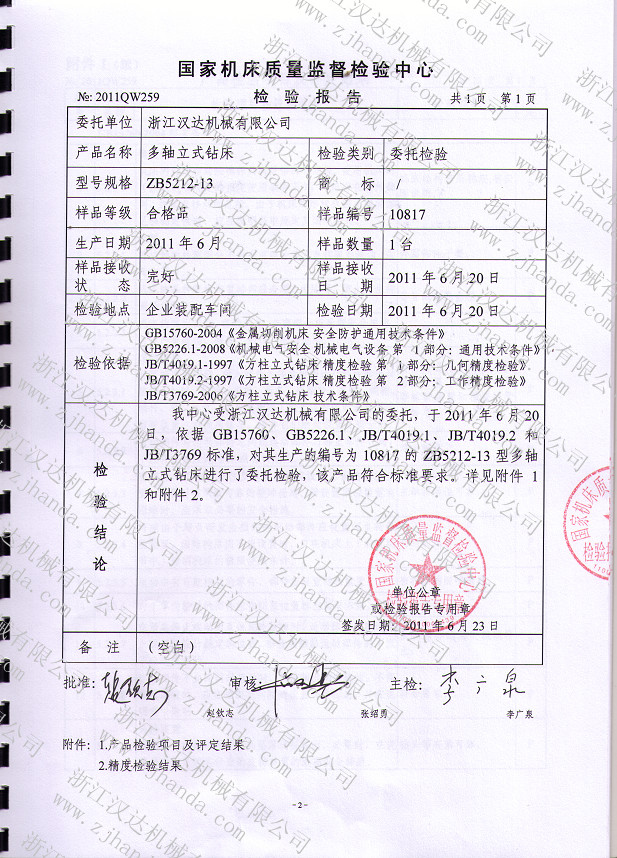 国家机床质量监督检验中心
№: 2011QW259 检验报告 共1页 第1页
委托单位 浙江汉达机械有限公司
产品名称 多轴立式钻床 检验类别 委托检验
型号规格 ZB5212-13 商标 /
样品等级 合格品 样品编号 10817
生产日期 2011年6月 样品数量 1台
样品接收状态 完好 样品接收日期 2011年6月20日
检验地点 企业装配车间 检验日期 2011年6月20日
检验依据
GB15760-2004《金属切削机床 安全防护通用技术条件》
GB5226.1-2008《机械电气安全 机械电气设备 第1部分：通用技术条件》
JB/T4019.1-1997《方柱立式钻床 精度检验 第1部分：几何精度检验》
JB/T4019.2-1997《方柱立式钻床 精度检验 第2部分：工作精度检验》
JB/T3769-2006《方柱立式钻床 技术条件》
检验结论
我中心受浙江汉达机械有限公司的委托，于2011年6月20
日，依据GB15760、GB5226.1、JB/T4019.1、JB/T4019.2和
JB/T3769标准，对其生产的编号为10817的ZB5212-13型多轴
立式钻床进行了委托检验，该产品符合标准要求。详见附件1
和附件2。
国家机床质量监督检验中心
单位公章
或检验报告专用章
签发日期：2011年6月23日
备注 （空白）
批准： 审核： 主检：李广泉
赵钦志 张绍勇 李广泉
附件：1.产品检验项目及评定结果
2.精度检验结果
-2-
浙江汉达机械有限公司
www.zjhanda.com